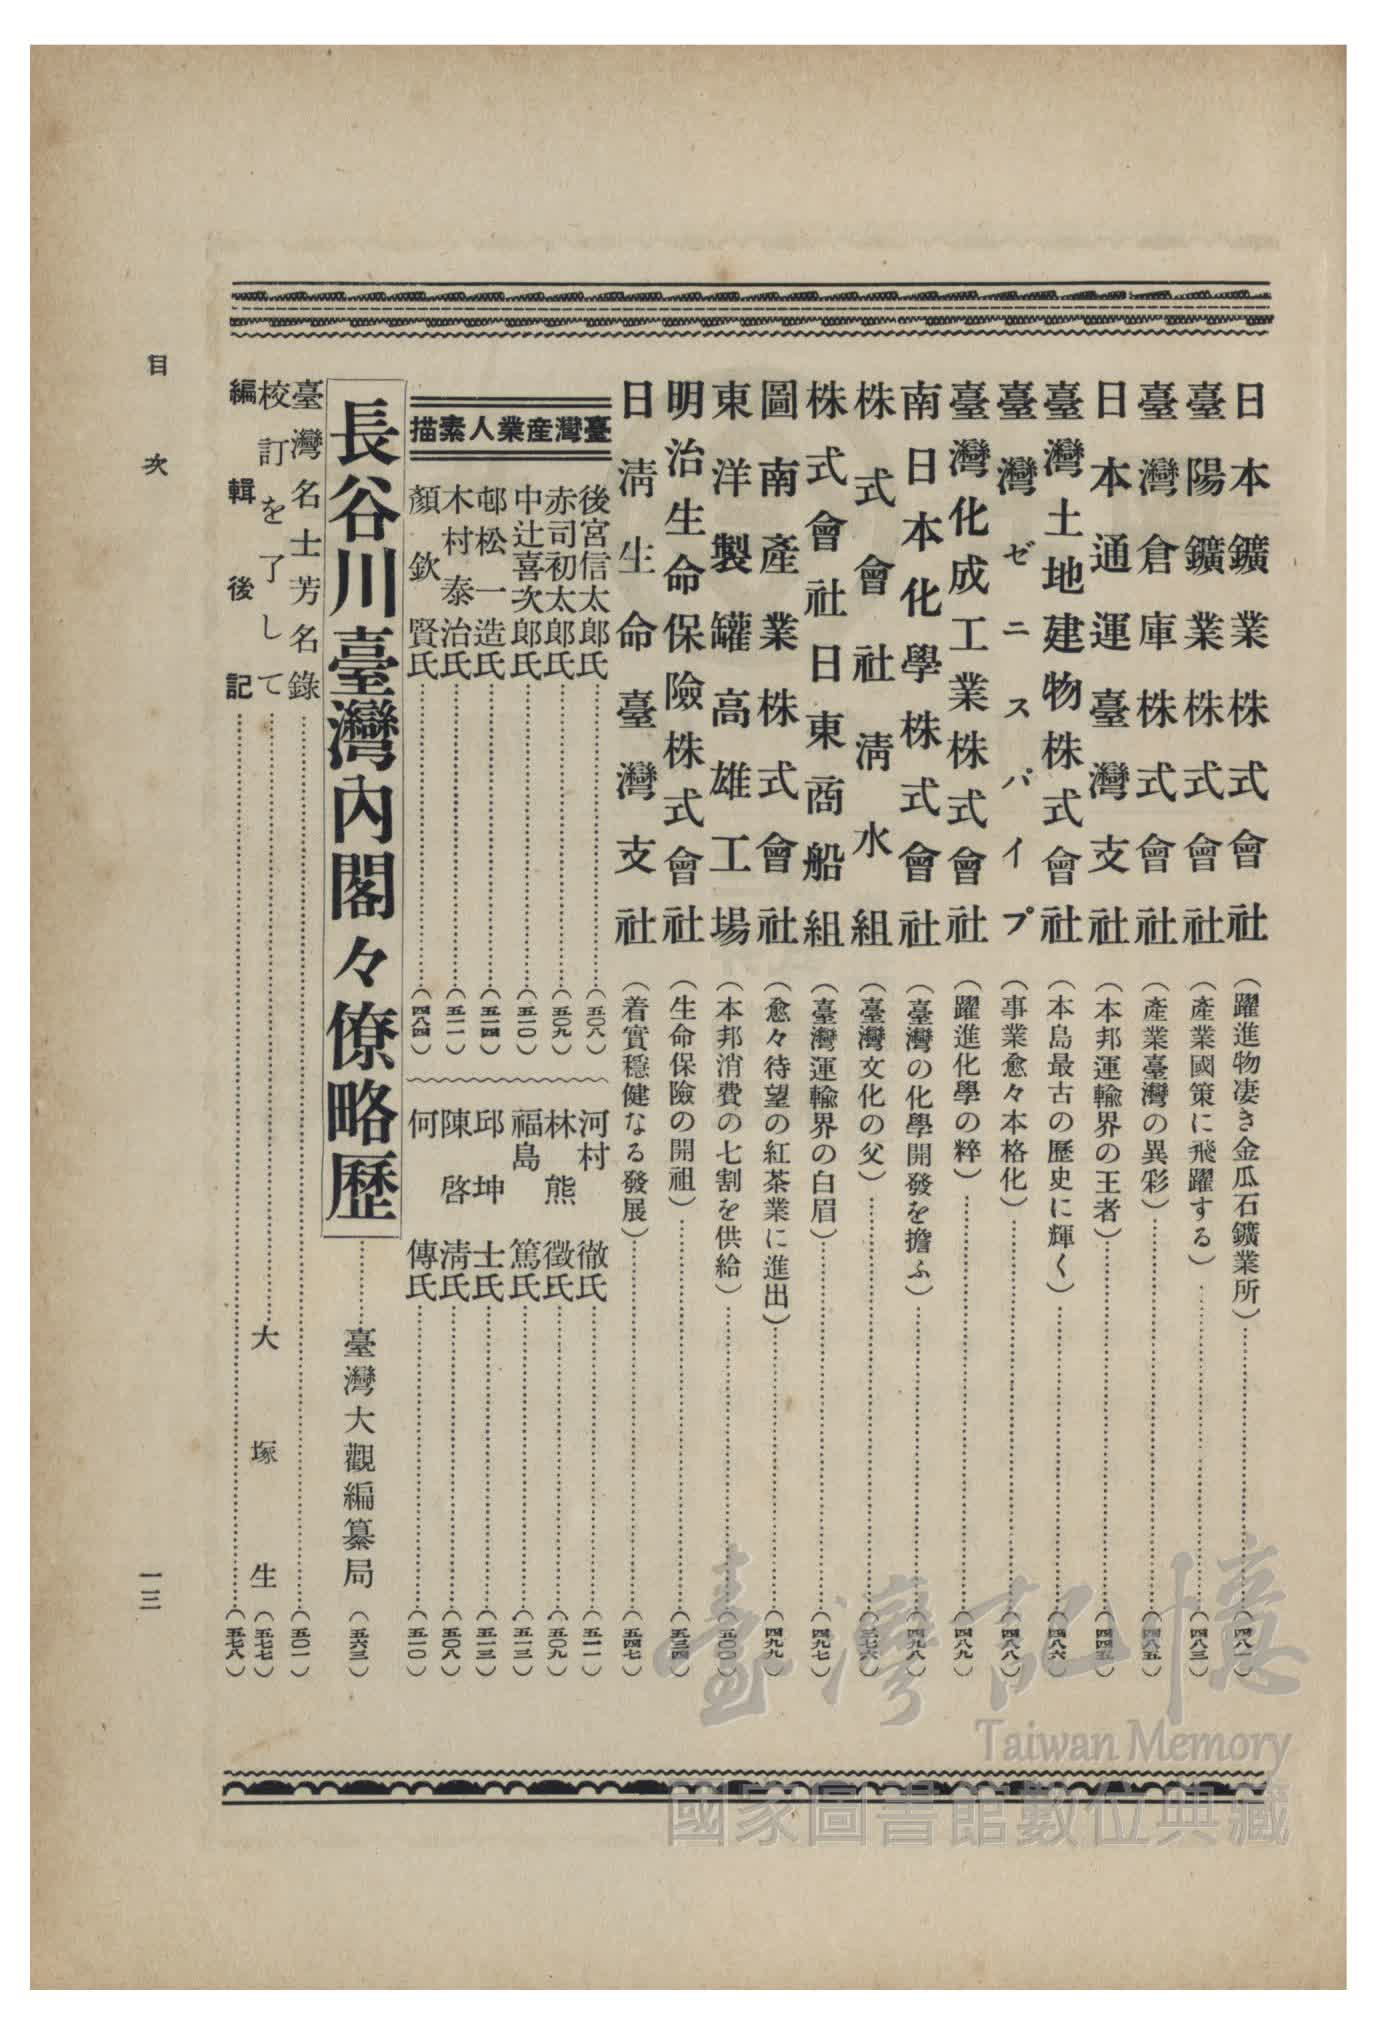 日本鑛業株式會社(躍進物凄き金瓜石鑛業所)(四八一)
臺陽鑛業株式會社(產業國策に飛躍する)(四八三)
臺灣倉庫株式會社(產業臺灣の異彩)(四八五)
日本通運臺灣支社(本邦運輸界の王者)(四四五)
臺灣土地建物株式會社(本島最古の歷史に輝く)(四八六)
臺灣ゼニスパイプ(事業愈々本格化)(四八八)
臺灣化成工業株式會社(躍進化學の粹)(四八九)
南日本化學株式會社(臺灣の化學開發を擔ふ)(四九八)
株式會社淸水組(臺灣文化の父)(三七六)
株式會社日東商船組(臺灣運輸界の白眉)(四九七)
圖南產業株式會社(愈々待望の紅茶業に進出)(四九九)
東洋製罐高雄工場(本邦消費の七割を供給)(五〇〇)
明治生命保險株式會社(生命保險の開祖)(五三四)
日淸生命臺灣支社(着實穩健なる發展)(五四七)
臺灣產業人素描
後宮信太郎氏(五〇八)
赤司初太郎氏(五〇九)
中辻喜次郎氏(五一〇)
邨松一造氏(五一四)
木村泰治氏(五一一)
顏欽賢氏(四八四)
河村徹氏(五一一)
林熊徵氏(五〇九)
福島篤氏(五一三)
邱坤士氏(五一三)
陳啓淸氏(五〇八)
何傳氏(五一〇)
長谷川臺灣內閣々僚略歷 臺灣大觀編纂局(五六三)
臺灣名士芳名錄(五〇一)
校訂を了して 大塚生(五七七)
編輯後記(五七八)
目次
一三
臺灣記憶
Taiwan Memory
國家圖書館數位典藏